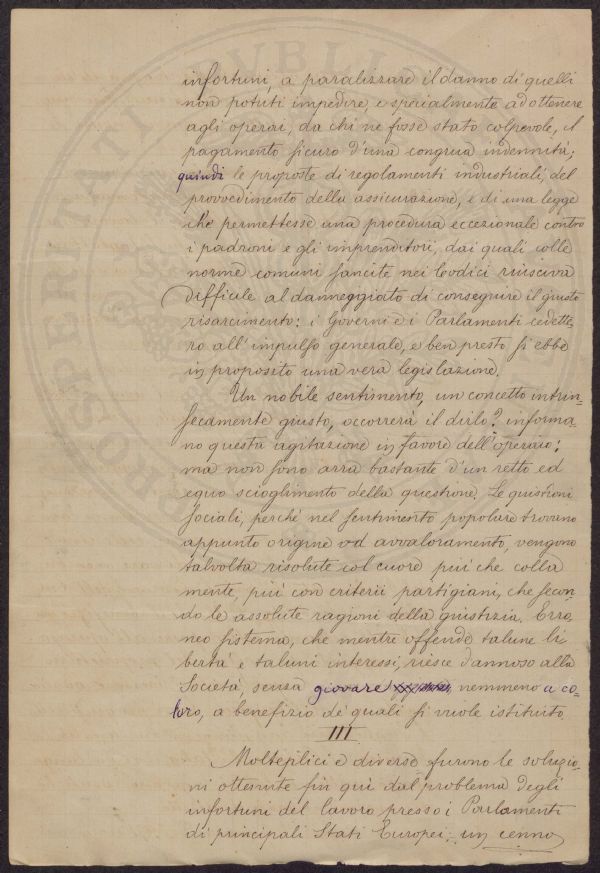 infortuni, a paralizzare il danno di quelli
non potuti impedire, e specialmente ad ottenere
agli operai, da chi ne fosse stato colpevole, il
pagamento sicuro d'una congrua indennità;
quindi le proposte di regolamenti industriali, del
provvedimento della assicurazione, e di una legge
che permettesse una procedura eccezionale contro
i padroni e gli imprenditori, dai quali colle
norme comuni sancite nei Codici riusciva
difficile al danneggiato di conseguire il giusto
risarcimento: i Governi e i Parlamenti cedette-
ro all'impulso generale, e ben presto si ebbe
in proposito una vera legislazione.
Un nobile sentimento, un concetto intrin-
secamente giusto, occorrerà il dirlo? informa-
no questa agitazione in favore dell'operaio;
ma non sono arra bastante d'un retto ed
equo scioglimento della questione. Le quistioni
sociali, perchè nel sentimento popolare trovano
appunto origine ed avvaloramento, vengono
talvolta risolute col cuore più che colla
mente, più con criterii partigiani, che secon-
do le assolute ragioni della giustizia. Erro-
neo sistema, che mentre offende talune li-
bertà e taluni interessi, riesce dannoso alla
Società, senza giovare nemmeno a co-
loro, a benefizio de' quali si vuole istituito.
III
Molteplici e diverse furono le soluzio-
ni ottenute fin qui dal problema degli
infortuni del lavoro presso i Parlamenti
di principali Stati Europei: un cenno
PROSPERITATI PVBLIC